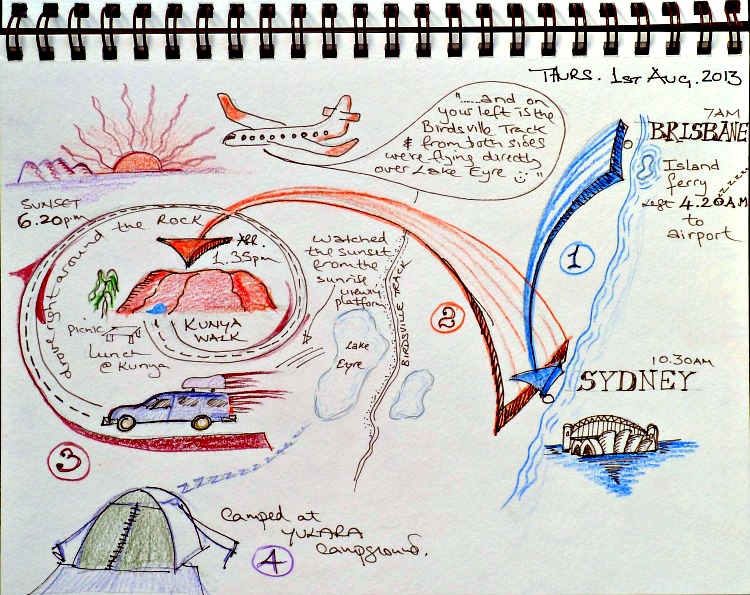 THURS. 1ST AUG. 2013
"......and on
your left is the
Birdsville Track
& from both sides
we're flying directly
over Lake Eyre
"
7AM
BRISBANE
Island
ferry
zzzzz
Left 4.20AM
to
airport
1
SUNSET
6.20pm
drove right around the ROCK
ARR.
1.35pm
Watched
the sunset
from the
sunrise
viewing
platform
KUNYA
WALK
Picnic
Lunch
@ Kunya
Lake
Eyre
BIRDSVILLE TRACK
2
10.30AM
SYDNEY
3
zzzzzzzz
Camped at
YULARA
Campground.
4